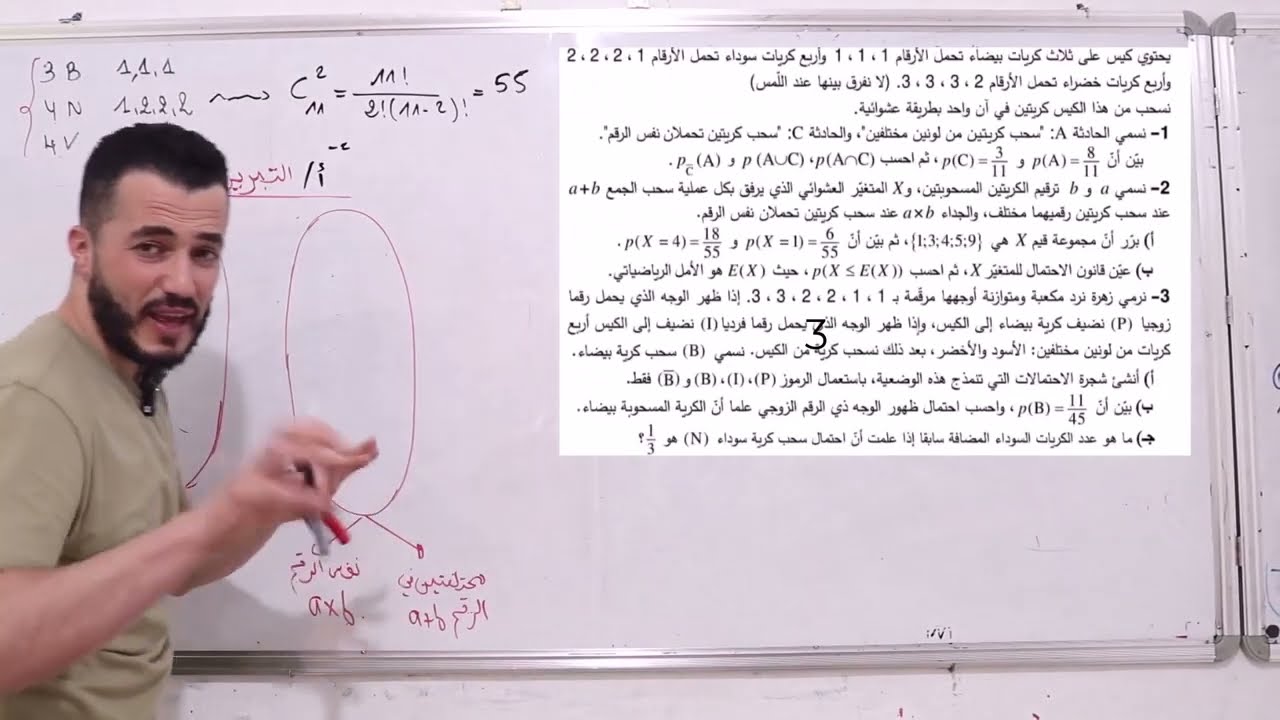 3 B 1,1,1
4 N 1,2,2,2
4 V
C₁₁² = 11! / 2!(11-2)! = 55
-2
أ/ التبرير
نفس الرقم
a×b
مختلفتين في
الرقم a+b
يحتوي كيس على ثلاث كريات بيضاء تحمل الأرقام 1 ، 1 ، 1 وأربع كريات سوداء تحمل الأرقام 1 ، 2 ، 2 ، 2
وأربع كريات خضراء تحمل الأرقام 2 ، 3 ، 3 ، 3. (لا نفرق بينها عند اللّمس)
نسحب من هذا الكيس كريتين في آن واحد بطريقة عشوائية.
1– نسمي الحادثة A: "سحب كريتين من لونين مختلفين"، والحادثة C: "سحب كريتين تحملان نفس الرقم".
بيّن أنّ p(A) = 8/11 و p(C) = 3/11 ، ثم احسب p(A∩C)، p(A∪C) و p_C̄(A) .
2– نسمي a و b ترقيم الكريتين المسحوبتين، وX المتغيّر العشوائي الذي يرفق بكل عملية سحب الجمع a+b
عند سحب كريتين رقميهما مختلف، والجداء a×b عند سحب كريتين تحملان نفس الرقم.
أ) برّر أنّ مجموعة قيم X هي {1;3;4;5;9}، ثم بيّن أنّ p(X = 1) = 6/55 و p(X = 4) = 18/55 .
ب) عيّن قانون الاحتمال للمتغيّر X، ثم احسب p(X ≤ E(X)) ، حيث E(X) هو الأمل الرياضياتي.
3– نرمي زهرة نرد مكعبة ومتوازنة أوجهها مرقّمة بـ 1 ، 1 ، 2 ، 2 ، 3 ، 3. إذا ظهر الوجه الذي يحمل رقما
زوجيا (P) نضيف كرية بيضاء إلى الكيس، وإذا ظهر الوجه الذي يحمل رقما فرديا (I) نضيف إلى الكيس أربع
3
كريات من لونين مختلفين: الأسود والأخضر، بعد ذلك نسحب كرية من الكيس. نسمي (B) سحب كرية بيضاء.
أ) أنشئ شجرة الاحتمالات التي تنمذج هذه الوضعية، باستعمال الرموز (P)، (I)، (B) و (B̄) فقط.
ب) بيّن أنّ p(B) = 11/45 ، واحسب احتمال ظهور الوجه ذي الرقم الزوجي علما أنّ الكرية المسحوبة بيضاء.
جـ) ما هو عدد الكريات السوداء المضافة سابقا إذا علمت أنّ احتمال سحب كرية سوداء (N) هو 1/3 ؟